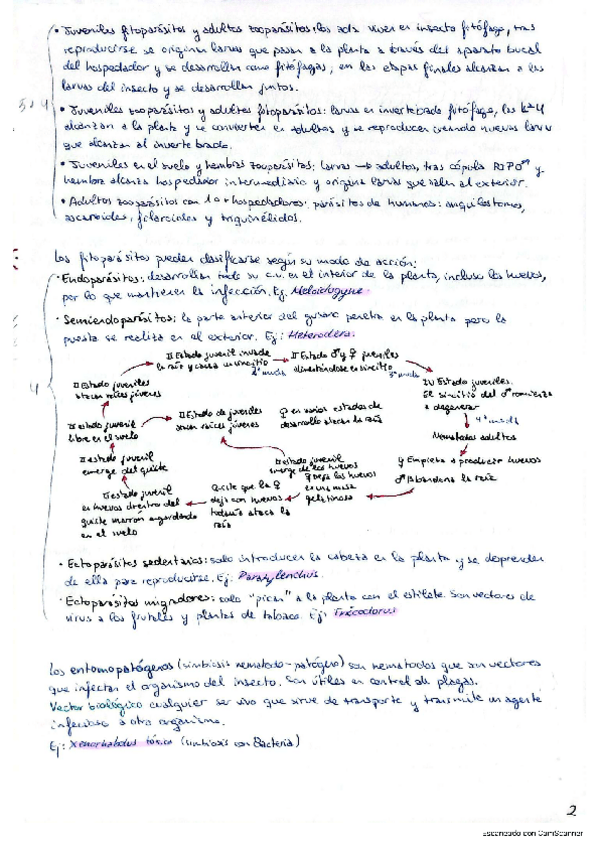 • Juveniles fitoparásitos y adultos zooparásitos: los ad. viven en insecto fitófago, tras
reproducirse se originan larvas que pasan a la planta a través del aparato bucal
del hospedador y se desarrollan como fitófagas, en las etapas finales alcanzan a las
larvas del insecto y se desarrollan juntos.
• Juveniles zooparásitos y adultos fitoparásitos: larvas en invertebrado fitófago, las
alcanzan a la planta y se convierten en adultos y se reproducen creando nuevas larvas
que alcanzan al invertebrado.
• Juveniles en el suelo y hembras zooparásitas: larvas → adultos, tras cópula y
hembra alcanza hospedador intermediario y origina larvas que salen al exterior.
• Adultos zooparásitos con 1 o + hospedadores: parásitos de humanos: anquilostomas,
ascaroideos, filaroideos y triquinélidos.
Los fitoparásitos pueden clasificarse según su modo de acción:
• Endoparásitos: desarrollan todo su c.v. en el interior de la planta, incluso los huevos,
por lo que mantienen la infección. Ej: Meloidogyne
• Semiendoparásitos: la parte anterior del gusano penetra en la planta pero la
puesta se realiza en el exterior. Ej: Heterodera
II Estado juvenil invade
la raíz y causa un sincitio
2ª muda
II Estado ♂ y ♀ juveniles
alimentándose en sincitio
3ª muda
IV Estado juveniles.
El sincitio del ♂ comienza
a degenerar
4ª muda
Nematodos adultos
♀ Empieza a producir huevos
♂ Abandona la raíz
II Estado juveniles
atacan raíces jóvenes
II Estado de juveniles
atacan raíces jóvenes
♀ en varios estados de
desarrollo atacan la raíz
II estado juvenil
libre en el suelo
II estado juvenil
emerge del quiste
II estado juvenil
emerge de los huevos
♀ deja los huevos
en una masa
gelatinosa
Quiste que la ♀
deja con huevos
todavía ataca la
raíz
II estado juvenil
en huevos dentro del
quiste marrón aguardando
en el suelo
• Ectoparásitos sedentarios: solo introducen la cabeza en la planta y se desprenden
de ella para reproducirse. Ej: Paratylenchus.
• Ectoparásitos migradores: solo "pican" a la planta con el estilete. Son vectores de
virus a los frutales y plantas de tabaco. Ej: Tricodorus
Los entomopatógenos (simbiosis nematodo-patógeno) son nematodos que son vectores
que infectan el organismo del insecto. Son útiles en control de plagas.
Vector biológico cualquier ser vivo que sirve de transporte y transmite un agente
infeccioso a otro organismo.
Ej: Xenorhabdus (simbiosis con Bacteria)
2
Escaneado con CamScanner